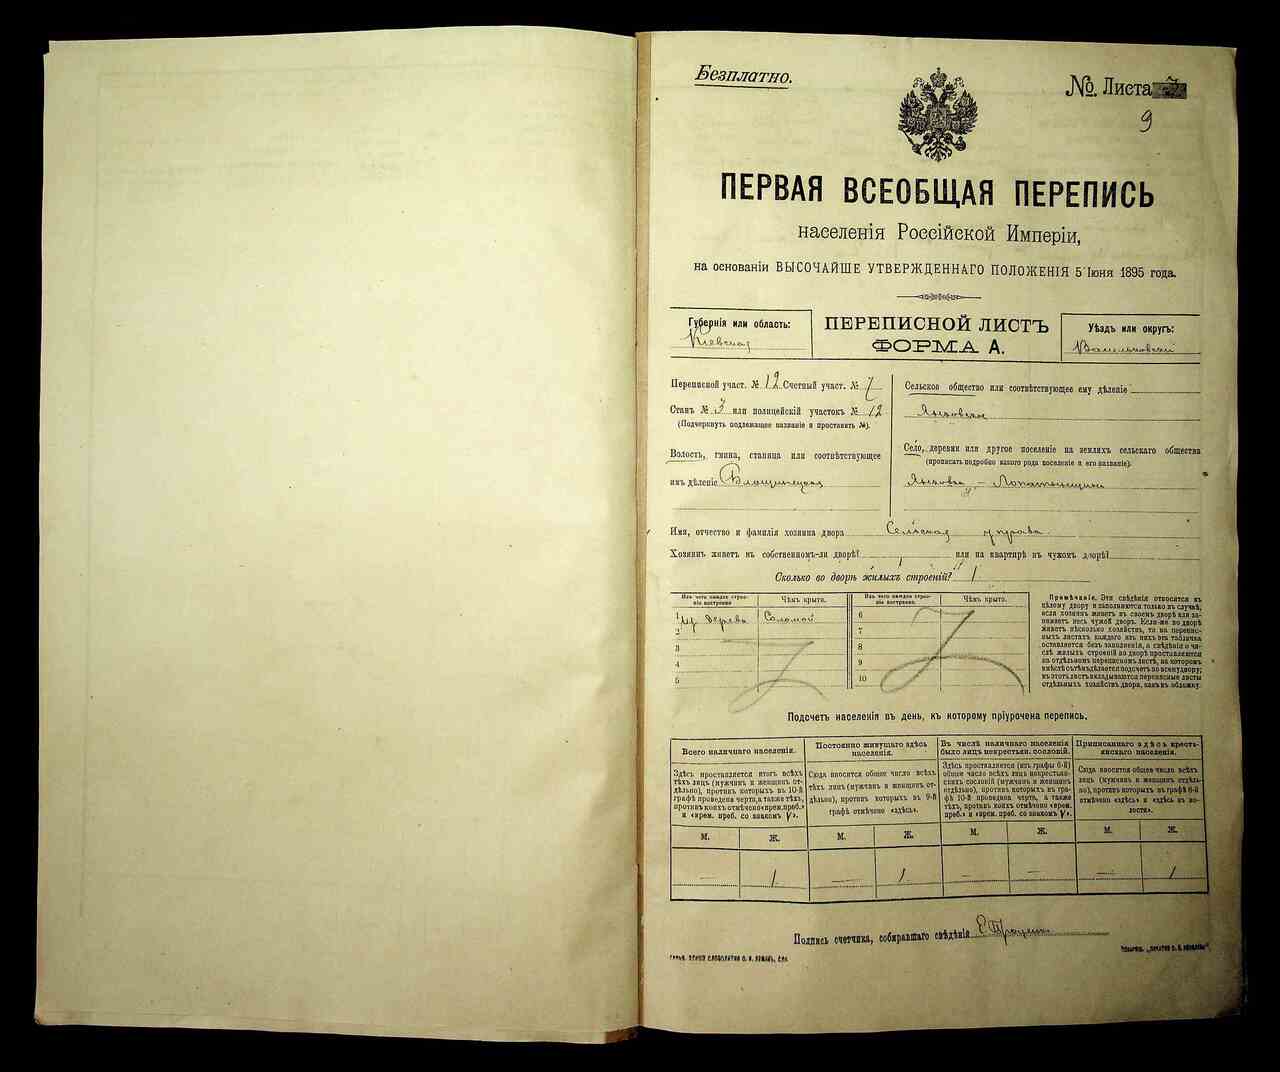 Безплатно.
№. Листа
9
ПЕРВАЯ ВСЕОБЩАЯ ПЕРЕПИСЬ
населенія Россійской Имперіи,
на основаніи ВЫСОЧАЙШЕ УТВЕРЖДЕННАГО ПОЛОЖЕНІЯ 5 Іюня 1895 года.
Губернія или область:
Кіевская
ПЕРЕПИСНОЙ ЛИСТЪ
ФОРМА А.
Уѣздъ или округъ:
Васильковскій
Переписной участ. № 12 Счетный участ. № 7
Станъ № 3 или полицейскій участокъ № 12
(Подчеркнуть подлежащее названіе и проставить №).
Волость, гмина, станица или соотвѣтствующее
имъ дѣленіе
Сельское общество или соотвѣтствующее ему дѣленіе
Село, деревня или другое поселеніе на земляхъ сельскаго общества
(прописать подробно какого рода поселеніе и его названіе).
Имя, отчество и фамилія хозяина двора Сельская управа
Хозяинъ живетъ въ собственномъ-ли дворѣ? или на квартирѣ въ чужомъ дворѣ?
Сколько во дворѣ жилыхъ строеній? 1
Изъ чего каждое строеніе построено
Чѣмъ крыто.
Изъ чего каждое строеніе построено
Чѣмъ крыто.
1 Изъ дерева Соломой
2
3
4
5
6
7
8
9
10
Примѣчаніе. Эти свѣдѣнія относятся къ
цѣлому двору и заполняются только въ случаѣ,
если хозяинъ живетъ въ своемъ дворѣ или за-
нимаетъ весь чужой дворъ. Если-же во дворѣ
живетъ нѣсколько хозяйствъ, то на перепис-
ныхъ листахъ каждаго изъ нихъ эта табличка
оставляется безъ заполненія, а свѣдѣнія о чи-
слѣ жилыхъ строеній во дворѣ проставляются
на отдѣльномъ переписномъ листѣ, на которомъ
вмѣстѣ съ тѣмъ дѣлается подсчетъ по всему двору;
въ этотъ листъ вкладываются переписные листы
отдѣльныхъ хозяйствъ двора, какъ въ обложку.
Подсчетъ населенія въ день, къ которому пріурочена перепись.
Всего наличнаго населенія.
Здѣсь проставляется итогъ всѣхъ
тѣхъ лицъ (мужчинъ и женщинъ от-
дѣльно), противъ которыхъ въ 10-й
графѣ проведена черта, а также тѣхъ,
противъ коихъ отмѣчено «врем. преб.»
и «врем. преб. со знакомъ V».
Постоянно живущаго здѣсь
населенія.
Сюда вносится общее число всѣхъ
тѣхъ лицъ (мужчинъ и женщинъ от-
дѣльно), противъ которыхъ въ 9-й
графѣ отмѣчено «здѣсь».
Въ числѣ наличнаго населенія
было лицъ некрестьян. сословій.
Здѣсь проставляется (изъ графы 6-й)
общее число всѣхъ лицъ некрестьян-
скихъ сословій (мужчинъ и женщинъ
отдѣльно), противъ которыхъ въ гра-
фѣ 10-й проведена черта, а также
тѣхъ, противъ коихъ отмѣчено «врем.
преб.» и «врем. преб. со знакомъ V».
Приписаннаго здѣсь кресть-
янскаго населенія.
Сюда вносится общее число всѣхъ
лицъ (мужчинъ и женщинъ отдѣль-
но), противъ которыхъ въ графѣ 8-й
отмѣчено «здѣсь» и «здѣсь въ во-
лости».
М. Ж. М. Ж. М. Ж. М. Ж.
— 1 — 1 — — — 1
Подпись счетчика, собиравшаго свѣдѣнія